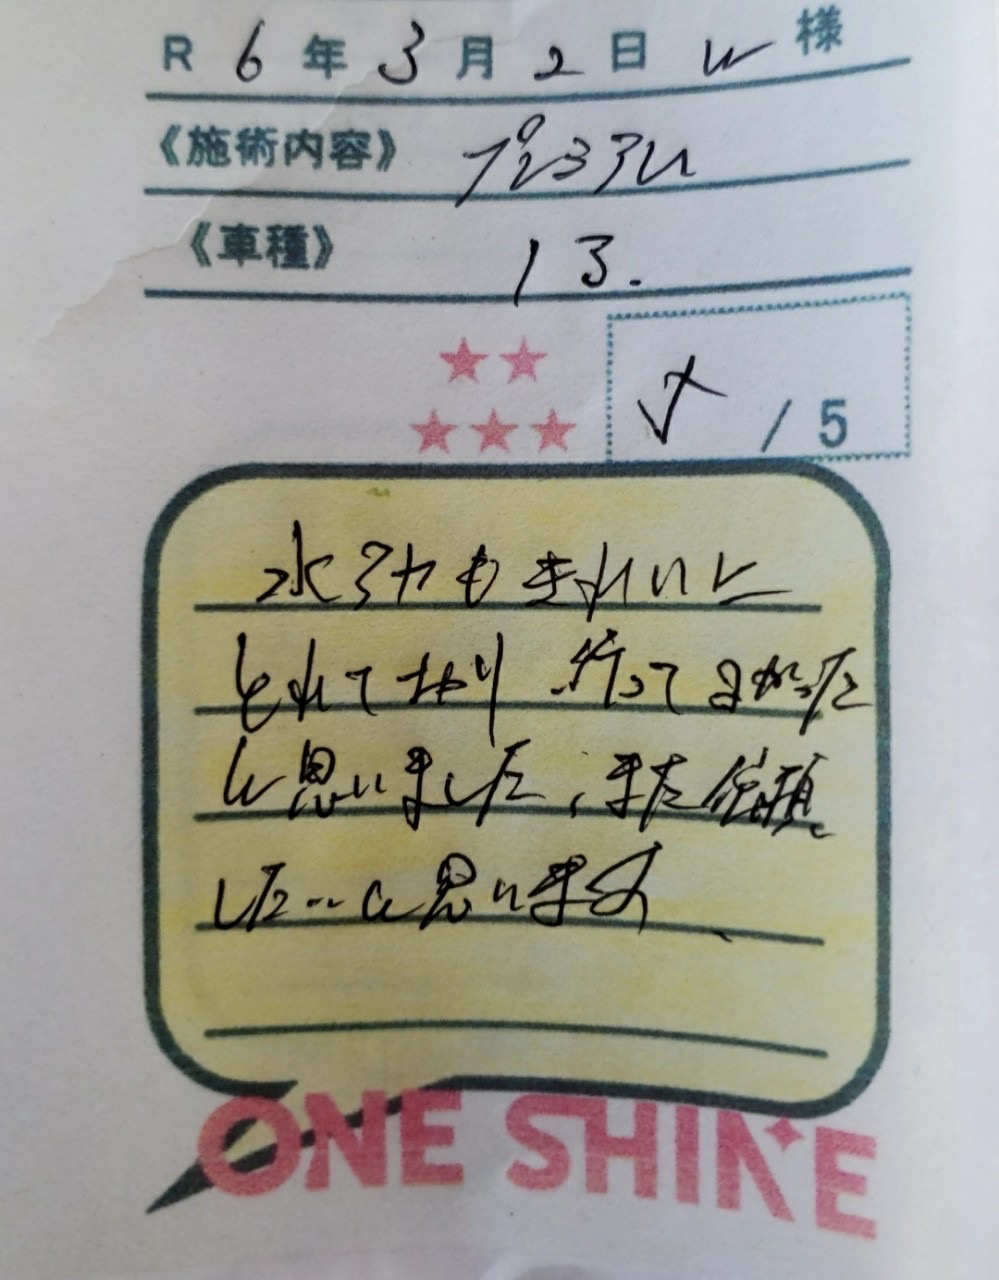 R 6 年 3 月 2 日 W 様
《施術内容》 プレミアム
《車種》 13.
5 / 5
水アカもきれいに
とれており 行ってよかった
と思いました、また依頼
したいと思います
ONE SHINE